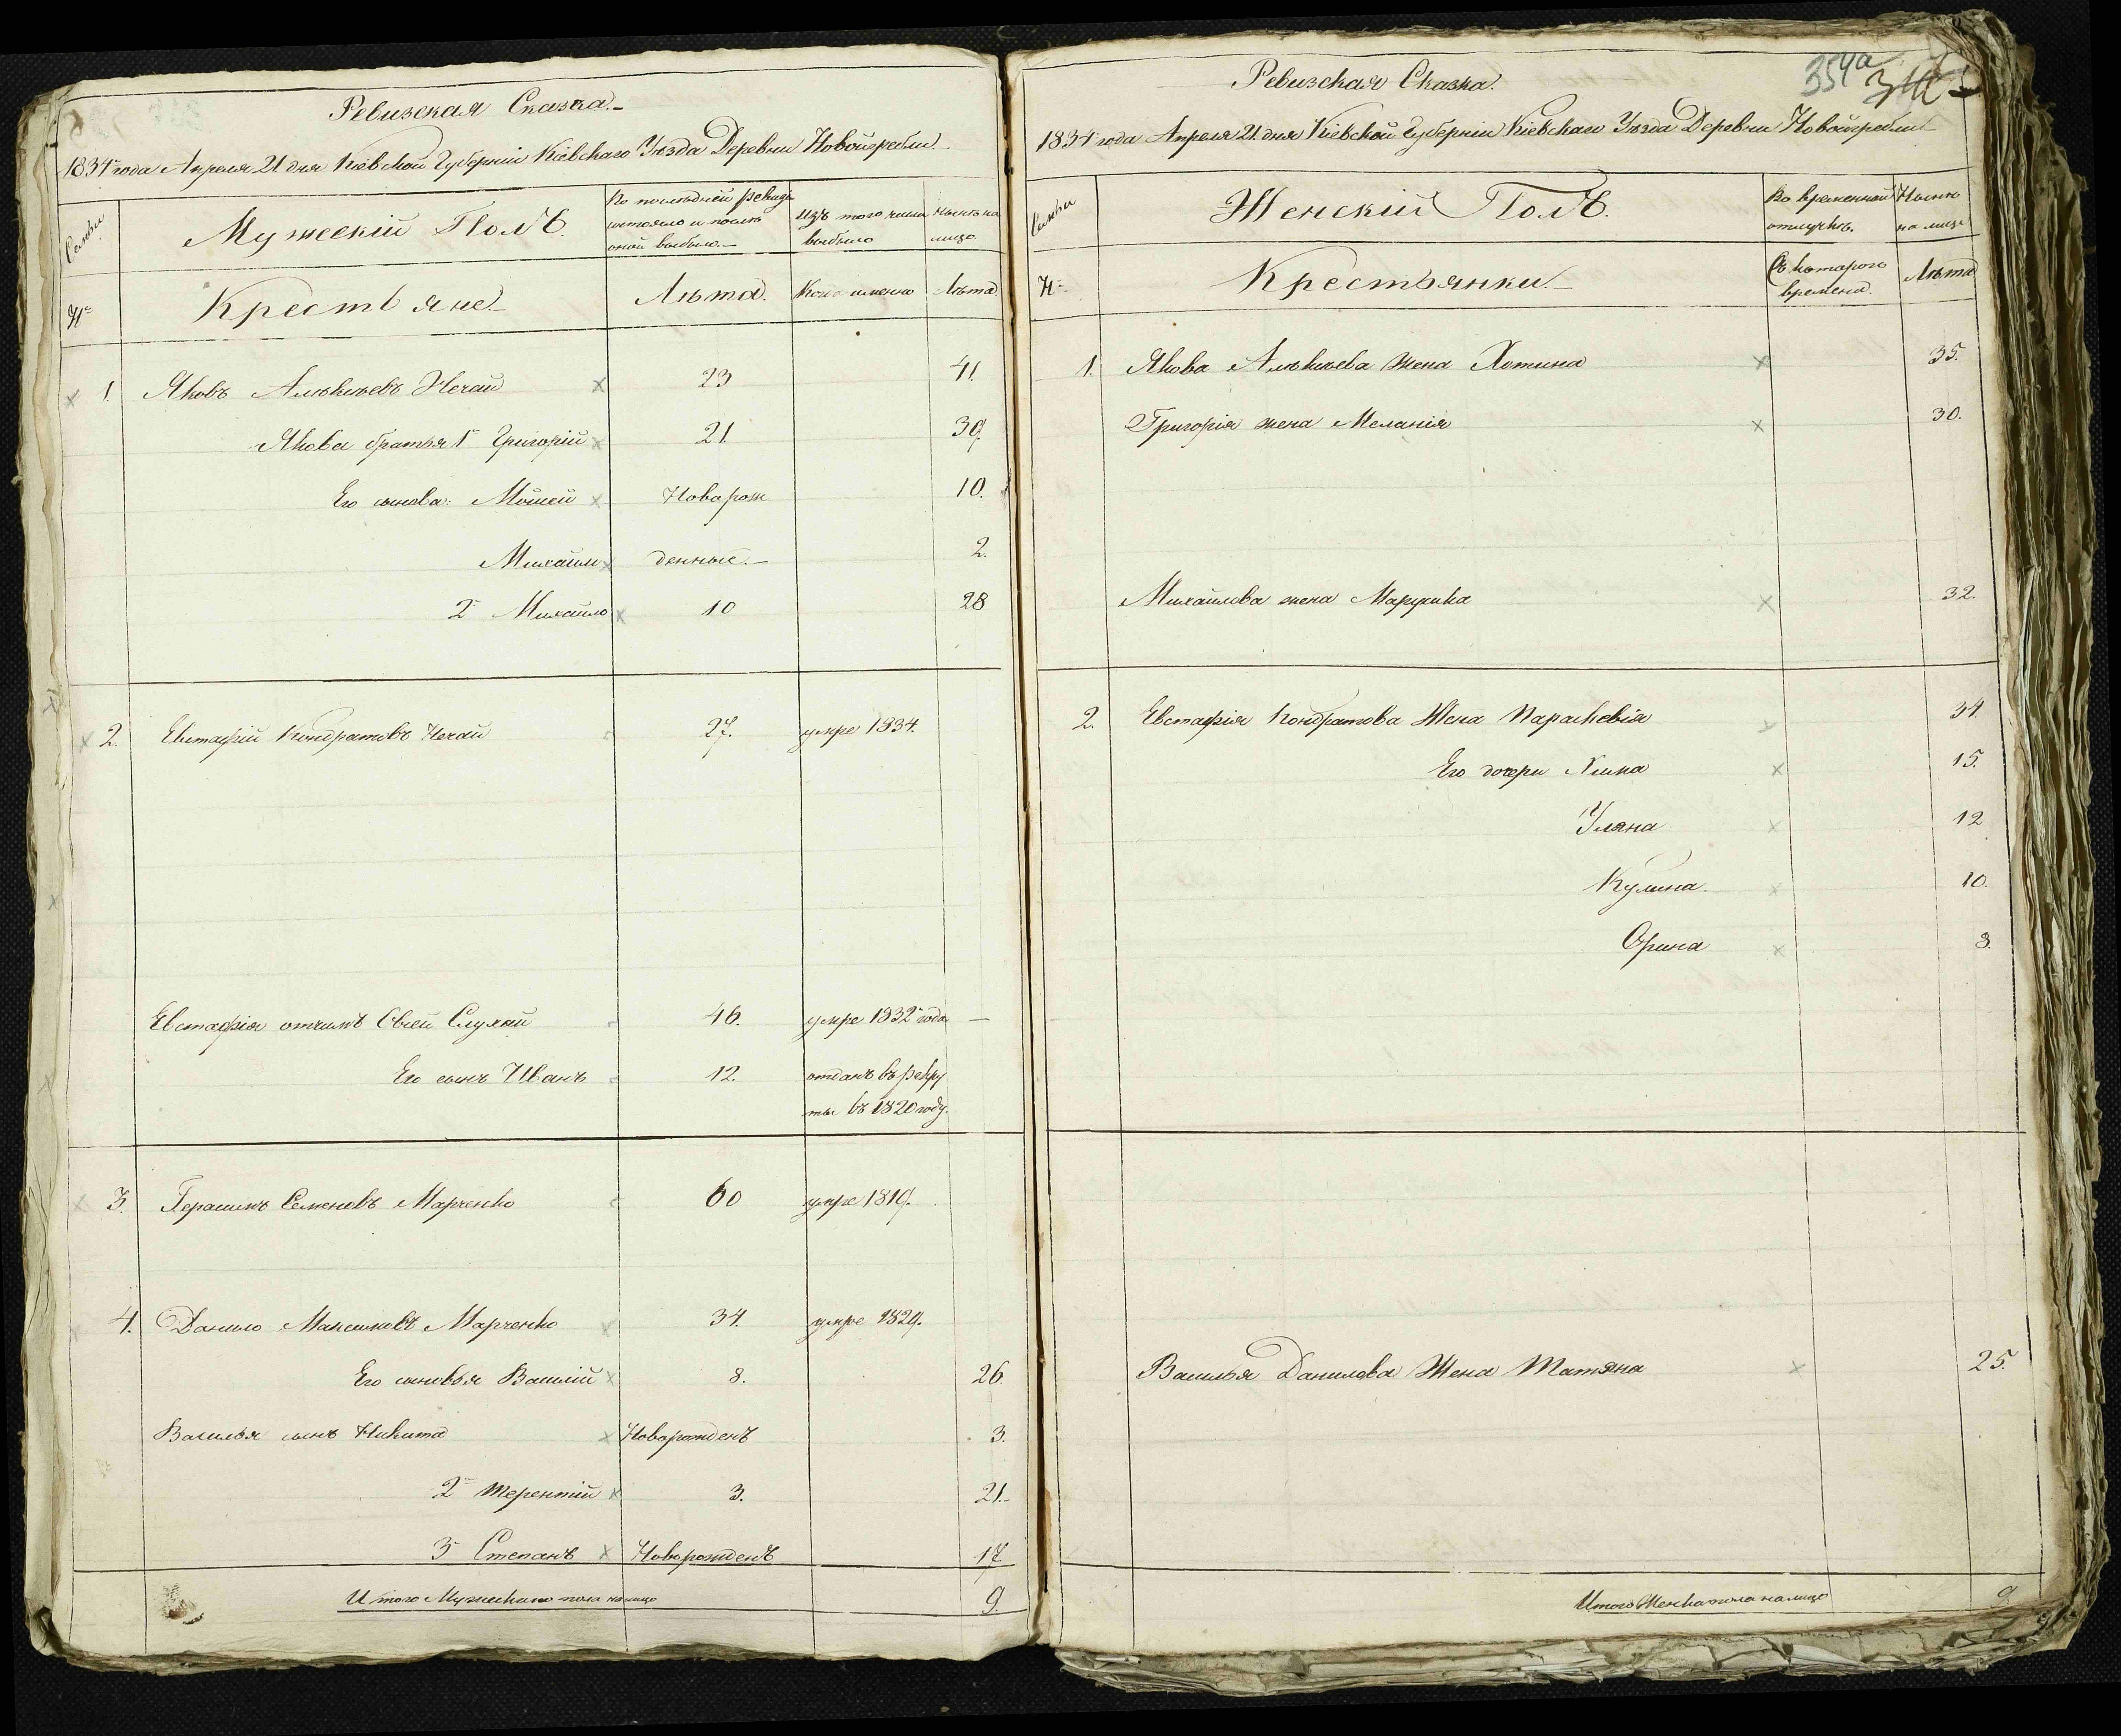 Ревизская Сказка.
1834 года Апреля 21 дня Кіевской Губерніи Кіевскаго Уѣзда Деревни Новойгребли
Семьи
Мужескій Полъ.
По послѣдней ревизіи состояло и послѣ оной выбыло.
Изъ того числа выбыло
Нынѣ на лицо
№
Крестьяне
Лѣта.
Когда именно
Лѣта
1. Яковъ Нечай 23 41.
Якова братья 1й Григорій 21 39.
Его сынова: Мойсей Новорож 10.
Михайло денные. 2.
2й Михайло 10 28
2. Евстафій Кондратовъ Нечай 27. умре 1834.
Евстафія отчимъ 46. умре 1832 года
Его сынъ Иванъ 12. отданъ въ рекру
ты въ 1820 году.
3. Герасимъ Семеновъ Марченко 60 умре 1819.
4. Данило Максимовъ Марченко 34. умре 1829.
Его сыновья Василій 8. 26
Василья сынъ Никита Новорожденъ 3.
2й Терентій 3. 21.
3й Степанъ Новорожденъ 17
Итого Мужескаго пола налицо 9.
354а
Ревизская Сказка.
1834 года Апреля 21 дня Кіевской Губерніи Кіевскаго Уѣзда Деревни Новойгребли
Семьи
Женскій Полъ.
Во временной отлучкѣ.
Нынѣ на лицо
№
Крестьянки
Съ котораго времена.
Лѣта
1. Якова жена Хотина 35.
Григорія жена Меланія 30.
Михайлова жена 32.
2. Евстафія Кондратова Жена Параскевія 34.
Его дочери 15.
Уляна 12
Кулина 10.
Орина 8.
Василья Данилова Жена Татяна 25.
Итого Женска пола налицо 9.